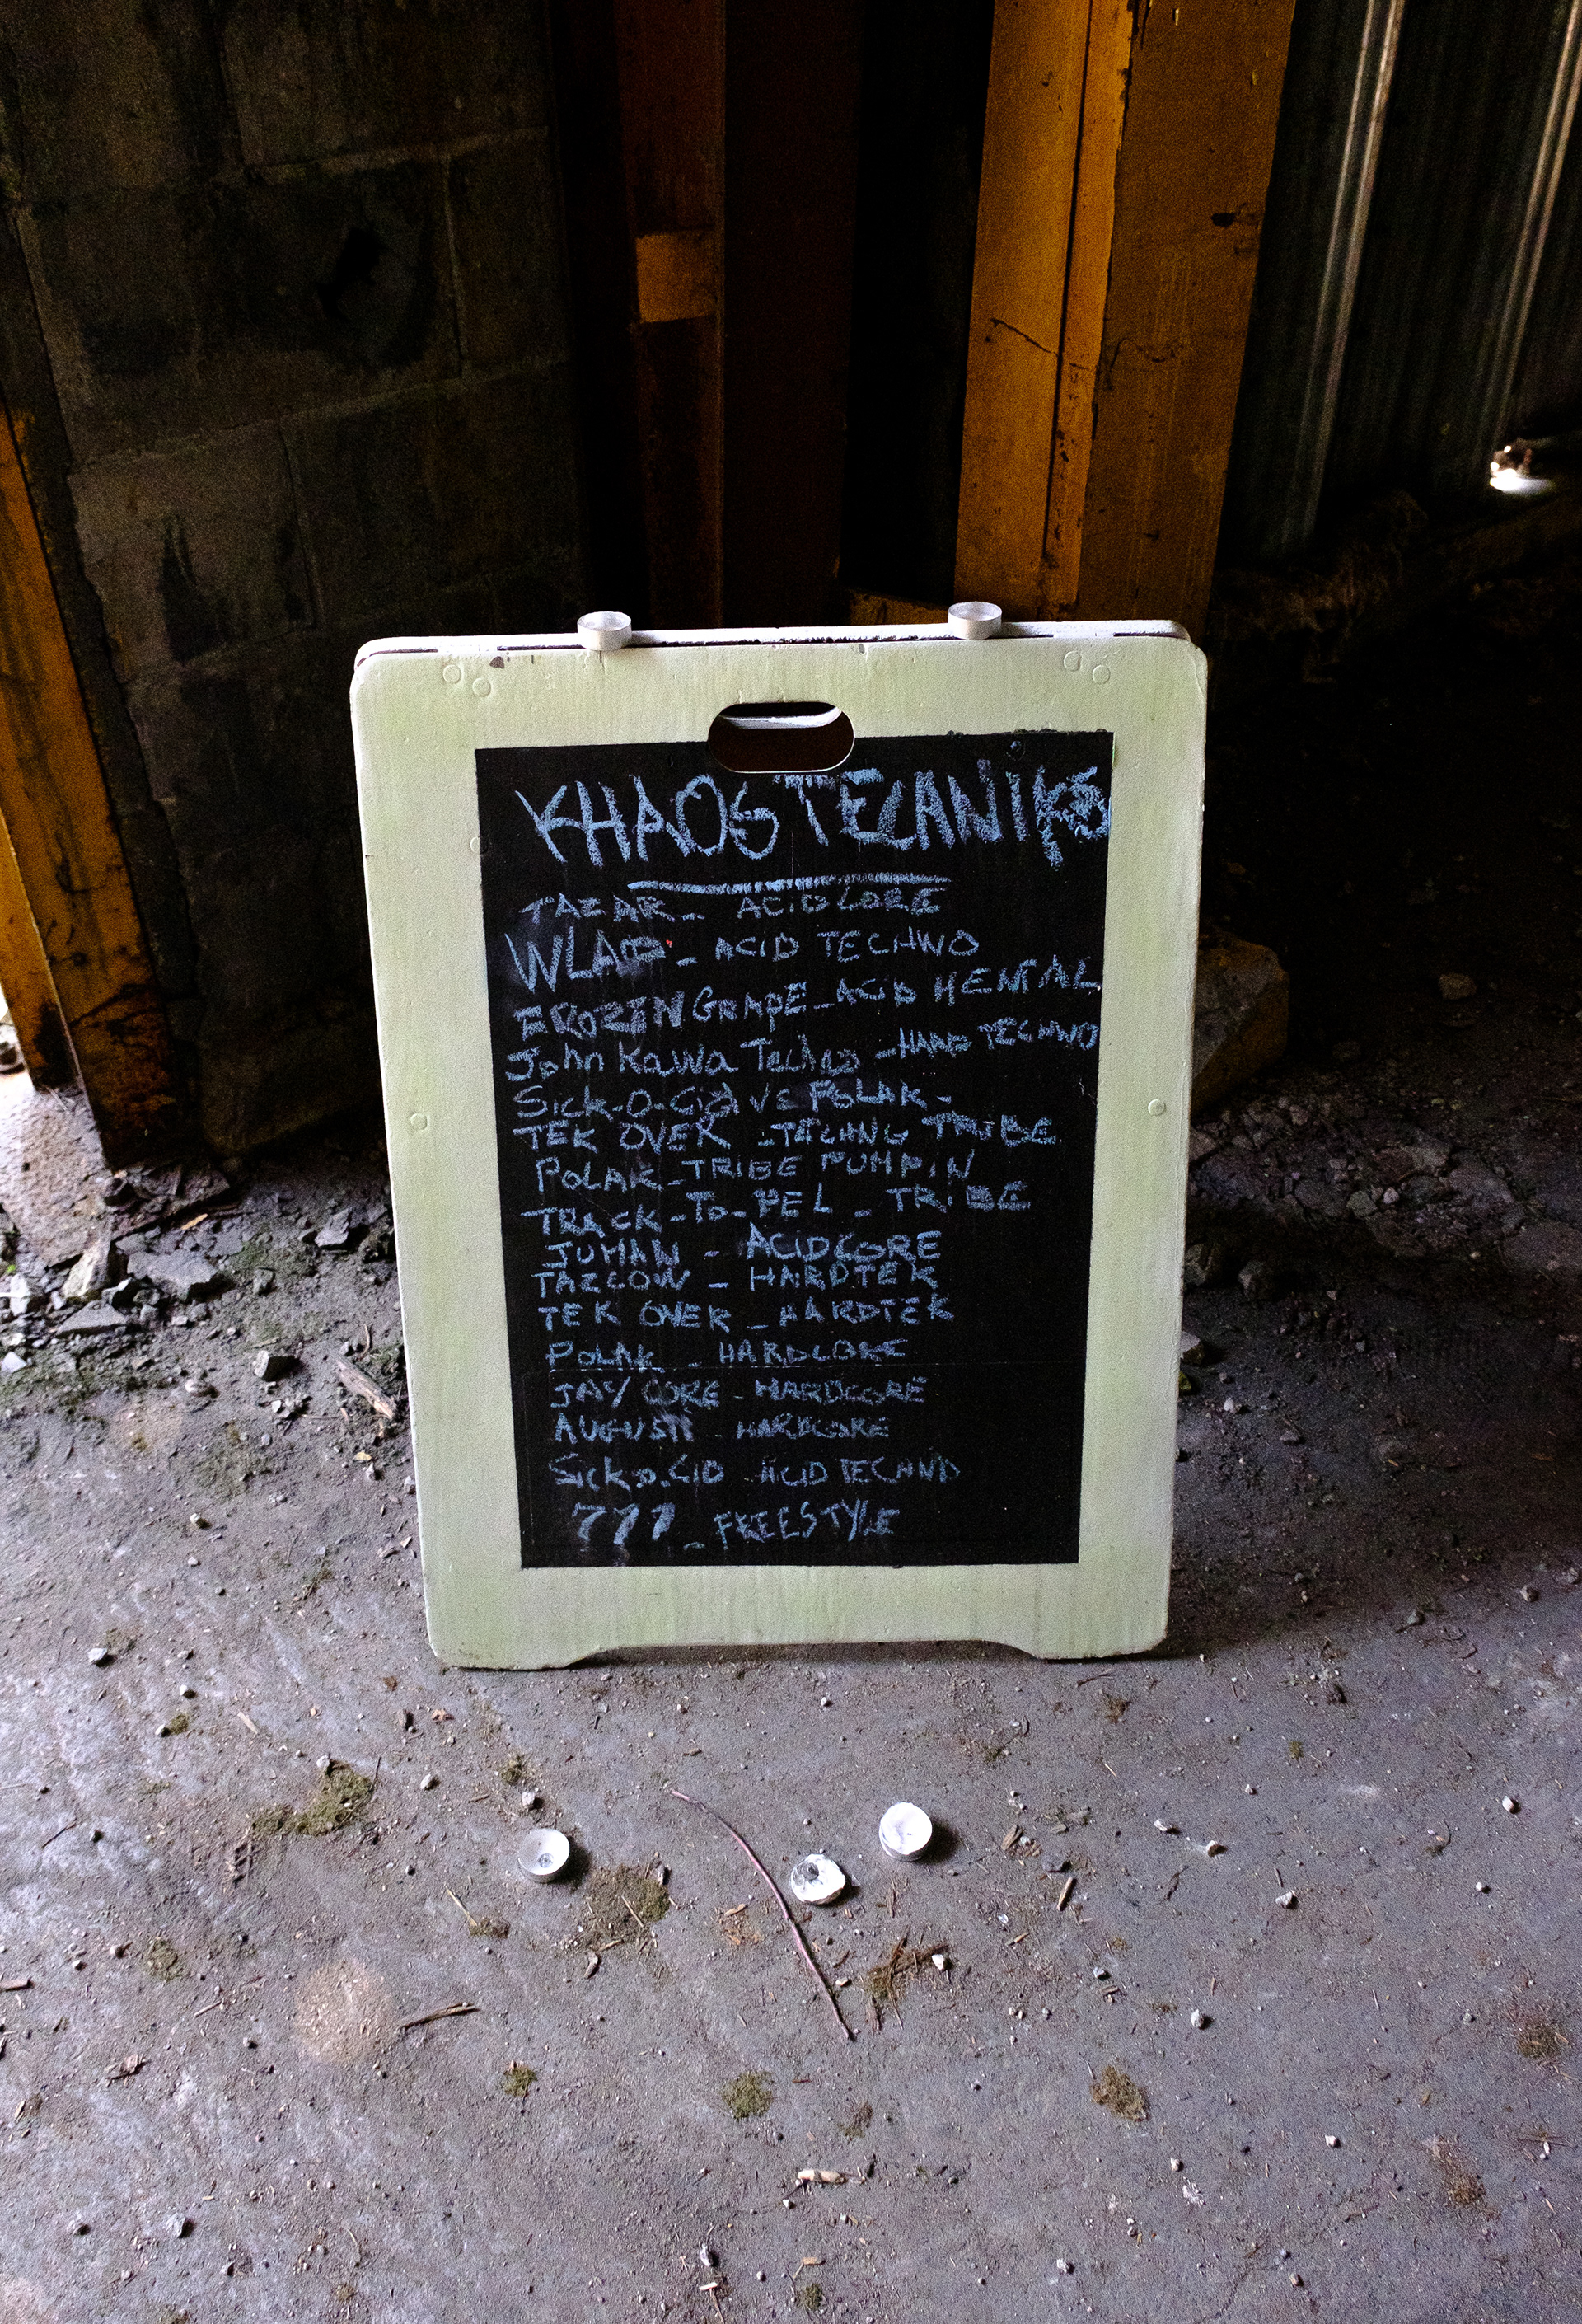 KHAOS TECHNIKS
TAZAR_ ACID CORE
WLAD - ACID TECHNO
FROZEN GRAPE_ACID MENTAL
John Kawa Techno - HARD TECHNO
Sick-O-Cid VS POLAK -
TEK OVER - TECHNO TRIBE
POLAK_TRIBE PUMPIN
TRACK-TO-PEL _ TRIBE
JUMAN - ACIDCORE
TAZCOW _ HARDTEK
TEK OVER _ HARDTEK
POLAK _ HARDCORE
JAY CORE - HARDCORE
AUGUSTT - HARDCORE
Sick.O.CID - ACID TECHNO
777 _ FREESTYLE